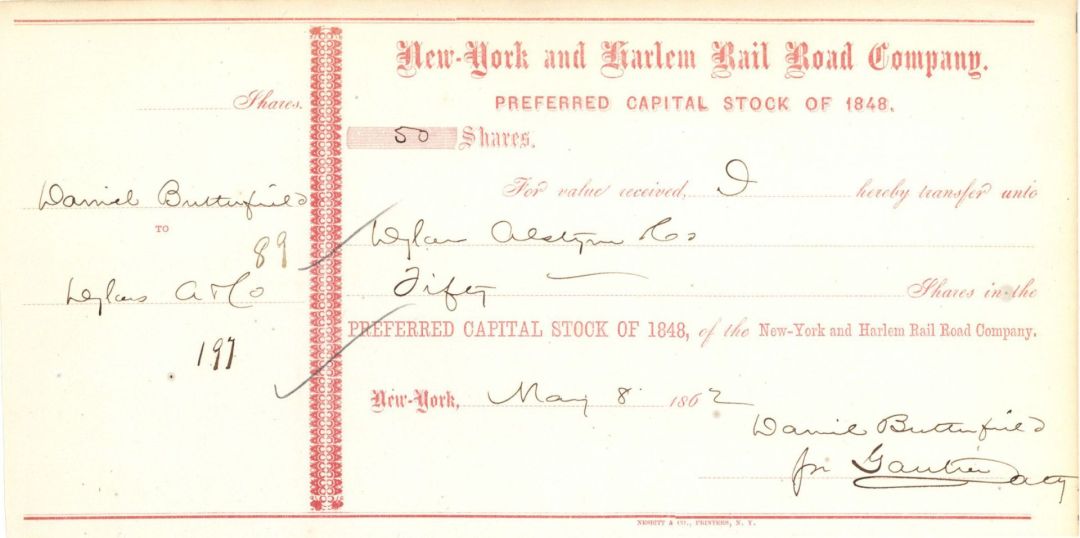 Shares.
Daniel Butterfield
TO
89
A & Co
197
New-York and Harlem Rail Road Company.
PREFERRED CAPITAL STOCK OF 1848.
50 Shares.
For value received, I hereby transfer unto
Alstyne & Co
Fifty Shares in the
PREFERRED CAPITAL STOCK OF 1848, of the New-York and Harlem Rail Road Company.
New-York, May 8 1862
Daniel Butterfield
pr Gautier atty
NESBITT & CO., PRINTERS, N. Y.